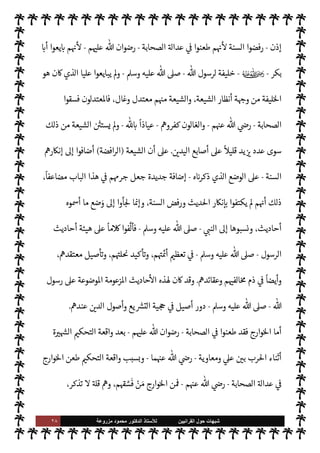 إذن - رفضوا السنة لأنهم طعنوا في عدالة الصحابة - رضوان الله عليهم - لأنهم بايعوا أبا
بكر - ﷺ - خليفة لرسول الله - صلى الله عليه وسلم - ولم يبايعوا عليا الذي كان هو
الخليفة من وجهة أنظار الشيعة، والشيعة منهم معتدل وغال، فالمعتدلون فسقوا
الصحابة - رضي الله عنهم - والغالون كفروهم - عياذاً بالله - ولم يستثن الشيعة من ذلك
سوى عدد يزيد قليلاً على أصابع اليدين. على أن الشيعة (الرافضة) أضافوا إلى إنكارهم
السنة - على الوضع الذي ذكرناه - إضافة جديدة جعل جرمهم في هذا الباب مضاعفاً،
ذلك أنهم لم يكتفوا بإنكار الحديث ورفض السنة، وإنما لجأوا إلى وضع ما أسموه
أحاديث، ونسبوها إلى النبي - صلى الله عليه وسلم - فألفوا كلاماً على هيئة أحاديث
الرسول - صلى الله عليه وسلم - في تعظيم أئمتهم، وتأكيد نحلتهم، وتأصيل معتقدهم،
وأيضاً في ذم مخالفيهم وعقائدهم. وقد كان لهذه الأحاديث المزعومة الموضوعة على رسول
الله - صلى الله عليه وسلم - دور أصيل في حجية التشريع وأصول الدين عندهم.
أما الخوارج فقد طعنوا في الصحابة - رضوان الله عليهم - بعد واقعة التحكيم الشهيرة
أثناء الحرب بين علي ومعاوية - رضي الله عنهما - وبسبب واقعة التحكيم طعن الخوارج
في عدالة الصحابة - رضي الله عنهم - فمن الخوارج مَنْ فَسَّقهم، وهم قلة لا تذكر،
شبهات حول القرآنيين للأستاذ الدكتور محمود مزروعة ٢٨